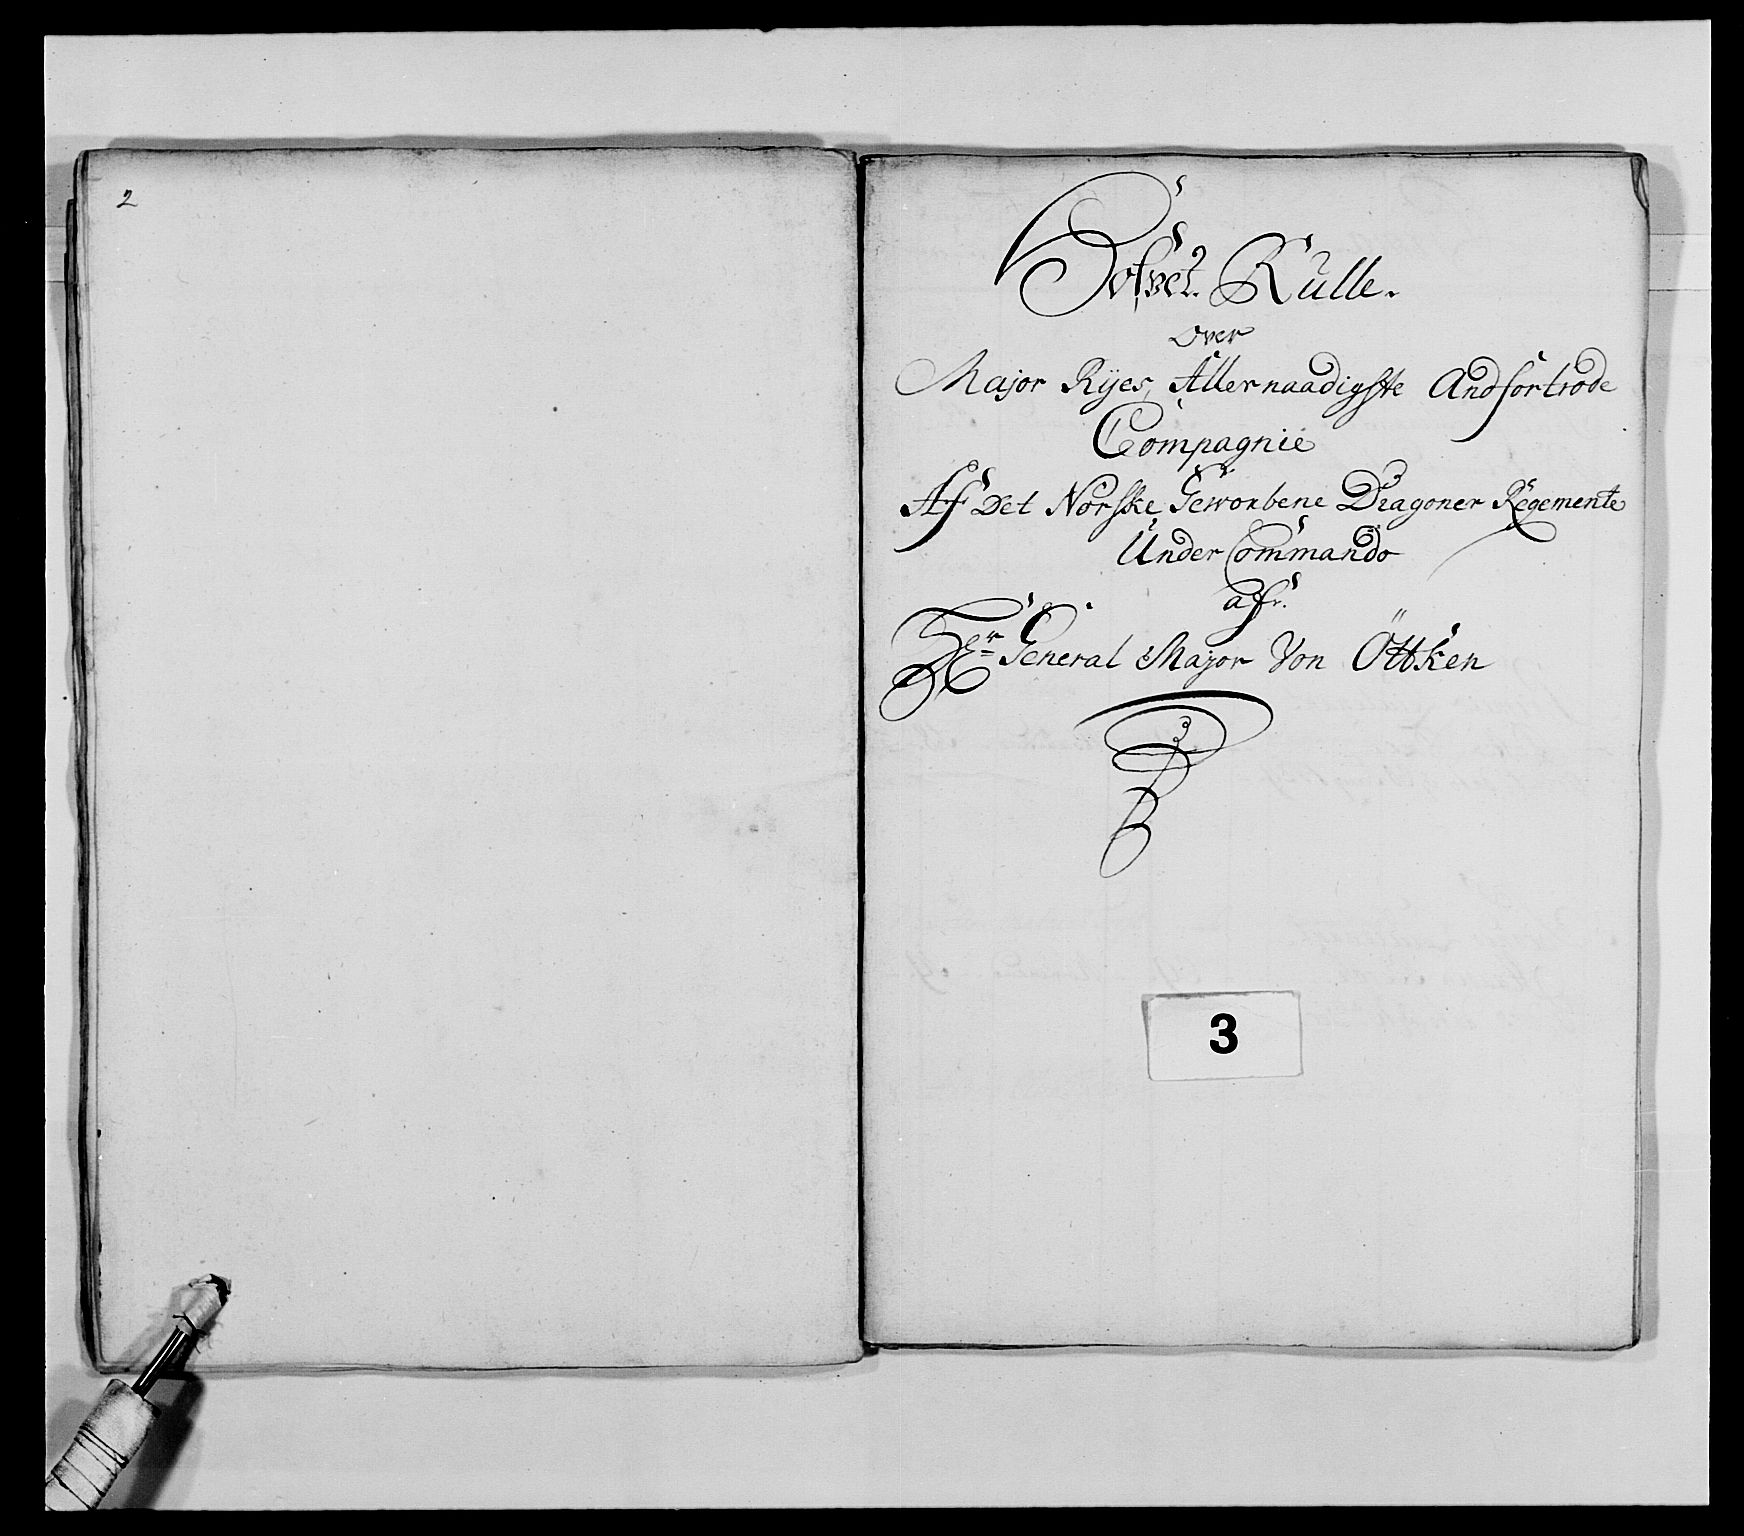 2
Hofvet. Rulle.
Over
Major Rÿes, Allernaadigste Andfortrode
Compagnie
Af Det Norske Geworbene Dragoner Regemente
Under Commando
af.
Hr General Major Von Öttken
3